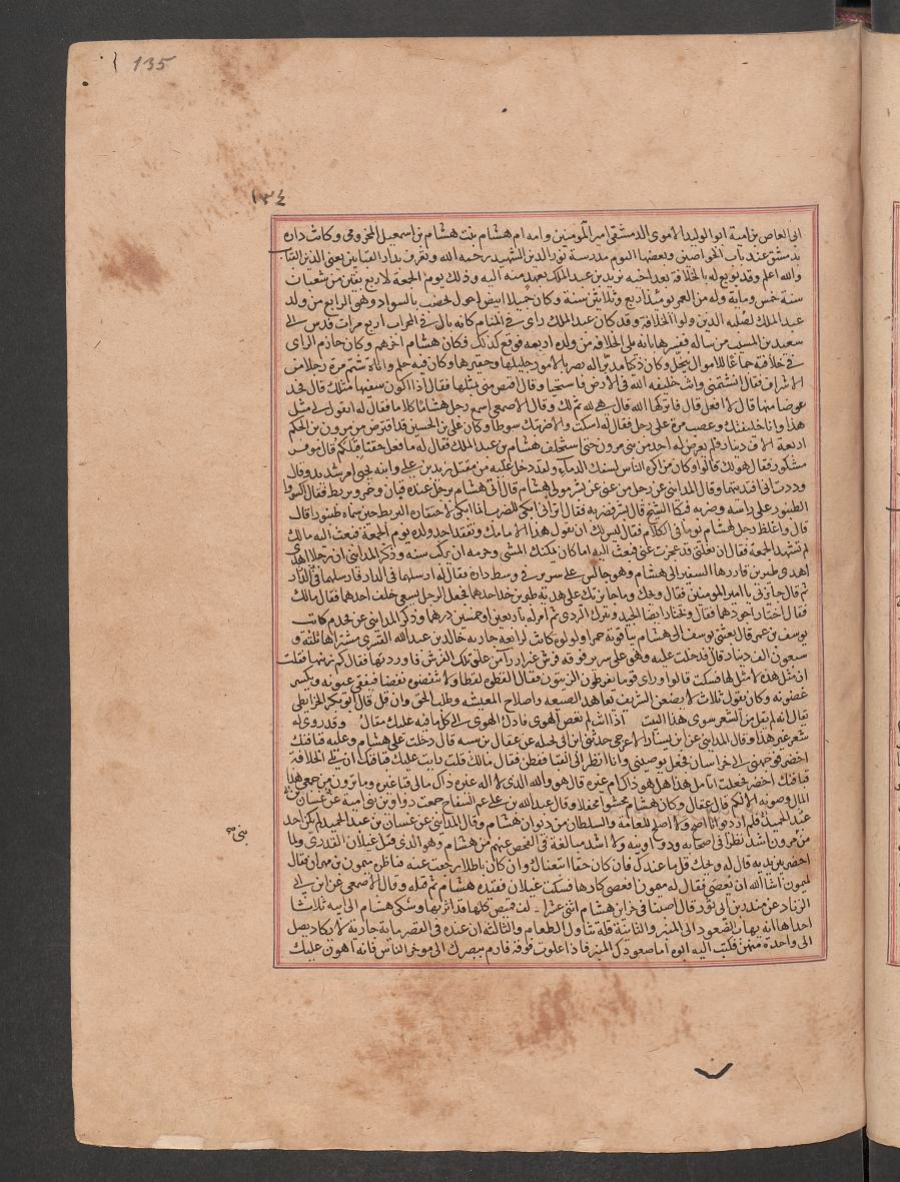 135
١٣٤
ابى العاص بن امية ابو الوليد الاموى الدمشقى امير المومنين وامه ام هشام بنت هشام بن اسمعيل المخزومى وكانت داره
بدمشق عند باب الخواصين وبعضها اليوم مدرسة نور الدين الشهيد رحمه الله وتعرف بدار القبابين يعنى الذين القباب
والله اعلم وقد بويع له بالخلافة بعد اخيه يزيد بن عبد الملك بعهد منه اليه وذلك يوم الجمعة لاربع بقين من شعبان
سنة خمس ومائة وله من العمر يومئذ اربع وثلاثين سنة وكان جميلا ابيض احول يخضب بالسواد وهو الرابع من ولد
عبد الملك لصلبه الذين ولوا الخلافة وقد كان عبد الملك راى فى المنام كانه بال فى المحراب اربع مرات فدس الى
سعيد بن المسيب من ساله ففسرها بانه يلى الخلافة من ولده اربعه فوقع كذلك فكان هشام اخرهم وكان حازم الراى
فى خلافته جماعا للاموال يبخل وكان ذكيا مدبرا له بصر بالامور جليلها وحقيرها وكان فيه حلم واناة شتم مرة رجلا من
الاشراف فقال اتشتمنى وانت خليفه الله فى الارض فاستحيا وقال اقتص منى بمثلها فقال اذا اكون سفيها مثلك قال فخذ
عوضا منها قال لا افعل قال فاتركها الله قال هى لله ثم لك وقال الاصمعى اسمع رجل هشاما كلاما فقال له اتقول لى مثل
هذا وانا خليفتك وغضب مرة على رجل فقال له اسكت والا ضربتك سوطا وكان على بن الحسين قد اقترض من مرون بن الحكم
اربعة الاف دينار فلم يعرض له احد من بنى مرون حتى استخلف هشام بن عبد الملك فقال له ما فعل حقنا قبلكم قال موفر
مشكور فقال هو لك قالوا وكان من اكره الناس لسفك الدماء ولقد دخل عليه من مقتل زيد بن على وابنه يحيى امر شديد وقال
وددت انى افتديتهما وقال المداينى عن رجل من غنى عن بشر مولى هشام قال اتى هشام برجل عنده قيان وخمر وبربط فقال اكسروا
الطنبور على راسه وضربه فبكا الشيخ قال بشر فصبره فقال اترانى ابكى للضرب انما ابكى لاحتقاره البربط حين سماه طنبورا قال
قال واغلظ رجل لهشام يوما فى الكلام فقال ليس لك ان تقول هذا لامامك وتفقد احد ولده يوم الجمعة فبعث اليه مالك
لم تشهد الجمعة فقال ان بغلتى قد عجزت عنى فبعث اليه اما كان يمكنك المشى وحرمه ان يركب سنه وذكر المداينى ان رجلا اهدى
اهدى طيرين فاوردها السفير الى هشام وهو جالس على سرير فى وسط داره فقال له ارسلهما فى الدار فارسلهما فى الدار
ثم قال جائزتى يا امير المومنين فقال ويحك وما جائزتك على هدية طيرين خذ احدهما فجعل الرجل يسعى خلف احدهما فقال مالك
فقال اختار اجودهما فقال وتختار ايضا الجيد وتترك الردى ثم امر له باربعين او خمسين درهما وذكر المداينى عن محمد كاتب
يوسف بن عمر قال بعثنى يوسف الى هشام بياقوتة حمرا ولولوة كانت لرابعه جاريه خالد بن عبد الله القسرى مشتراها ثلثة و
سبعون الف دينار قال فدخلت عليه وهو على سرير فوقه فرش لم ار راس على تلك الفرش فاوردتها فقال كم زنتها فقلت
ان مثل هذه لا مثل لها فسكت قالوا وراى قوما يفرطون الزيتون فقال القطوه لقطا ولا تنفضوه نفضا فيفقى عيونه ويكسر
غصونه وكان يقول ثلاث لا يضعن الشريف تعاهد الصنيعه واصلاح المعيشه وطلب الحق وان قل قال ابو بكر الخرائطى
يقال انه لم يقل من الشعر سوى هذا البيت اذا انت لم تعص الهوى قادك الهوى الى كل ما فيه عليك مقال وقد روى له
شعر غير هذا وقال المداينى عن ابن يسار الاعرجى حدثنى ابن ابى نحيله عن عقال بن شبه قال دخلت على هشام وعليه قبا فنك
اخضر فوجهنى الى خراسان فجعل يوصينى وانا انظر الى القبا ففطن فقال مالك قلت رايت عليك قبا فنك ان تلى الخلافة
قبا فنك اخضر فجعلت اتامل هذا هل هو ذاك ام غيره قال هو والله الذى لا اله غيره ذاك مالى قبا غيره وما ترون من جمعى هذا
المال وصونه الا لكم قال عقال وكان هشام محشوا بخلا وقال عبد الله بن على عم السفاح جمعت دواوين بنى امية عن غسان بن
عبد الحميد فلم ار ديوانا اصح ولا اصلح للعامة والسلطان من ديوان هشام وقال المداينى عن غسان بن عبد الحميد لم يكن احد
من مرون اشد نظرا فى اصحابه ودواوينه ولا اشد مبالغة فى الفحص عنهم من هشام وهو الذى قتل غيلان القدرى ولما
بنى صح
احضر بين يديه قال له ويحك قل ما عندك فان كان حقا اتبعناك وان كان باطلا رجعت عنه فناظره ميمون بن مهران فقال
لميمون اشا الله ان يعصى فقال له ميمون افعصى كارها فسكت غيلان فقيده هشام ثم قتله وقال الاصمعى عن ابن ابى
الزناد عن منذر بن ابى ثور قال اصبنا فى خزاين هشام اثنى عشر الف قميص كلها قد اثر بها وشكى هشام الى ابيه ثلاثا
احداها انه يهاب الصعود الى المنبر والثانية قلة تناول الطعام والثالثه ان عنده فى القصر ماية جارية لا يكاد يصل
الى واحدة منهن فكتب اليه ابوه اما صعودك المنبر فاذا علوت فوقه فارم ببصرك الى موخر الناس فانه اهون عليك